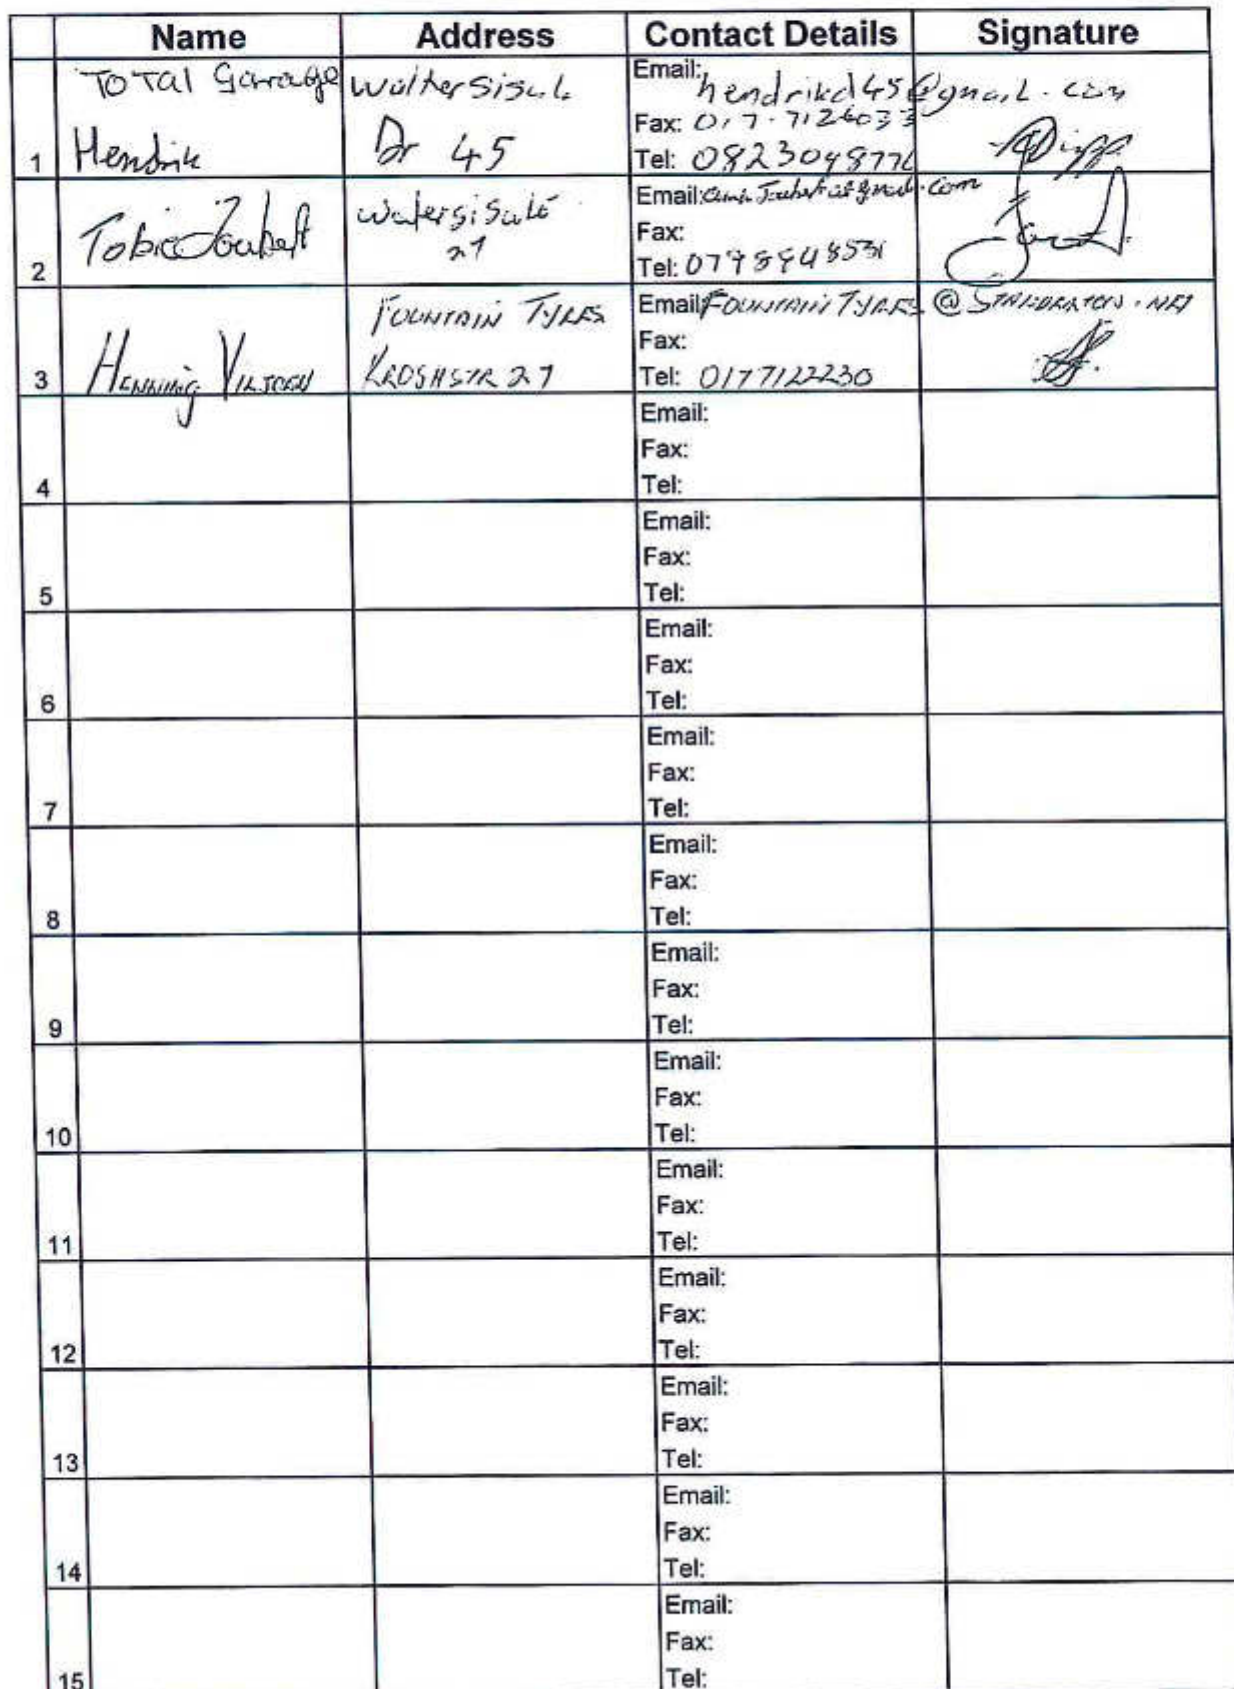 Name Address Contact Details Signature
1 Total Garage Hendrik
Walter Sisulu Dr 45
Email: hendrikd45@gmail.com
Fax: 017-7126033
Tel: 0823048776
2 Tobie Joubert
watersisulo 27
Email: @gmail.com
Fax:
Tel:
3 Henning Viljoen
Fountain Tyres
27
Email: Fountain Tyres @ Standerton.net
Fax:
Tel: 0177122230
4
Email:
Fax:
Tel:
5
Email:
Fax:
Tel:
6
Email:
Fax:
Tel:
7
Email:
Fax:
Tel:
8
Email:
Fax:
Tel:
9
Email:
Fax:
Tel:
10
Email:
Fax:
Tel:
11
Email:
Fax:
Tel:
12
Email:
Fax:
Tel:
13
Email:
Fax:
Tel:
14
Email:
Fax:
Tel:
15
Email:
Fax:
Tel: